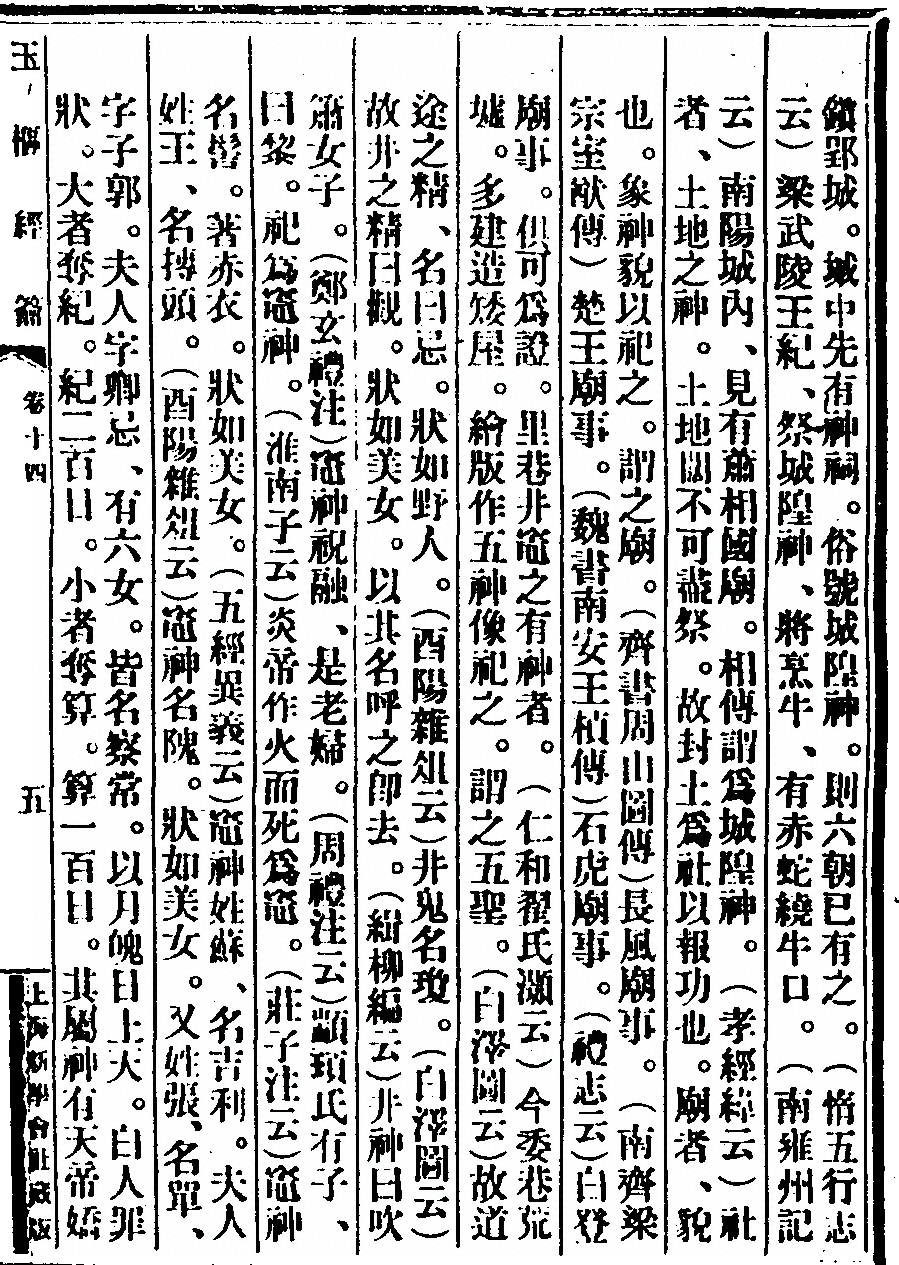 鎮郢城。城中先有神祠。俗號城隍神。則六朝已有之。（惰五行志
云）梁武陵王紀、祭城隍神、將烹牛、有赤蛇繞牛口。（南雍州記
云）南陽城內、見有蕭相國廟。相傳謂爲城隍神。（孝經緯云）社
者、土地之神。土地闊不可盡祭。故封土爲社以報功也。廟者、貌
也。象神貌以祀之。謂之廟。（齊書周山圖傳）長風廟事。（南齊梁
宗室猷傳）楚王廟事。（魏書南安王楨傳）石虎廟事。（禮志云）白登
廟事。俱可爲證。里巷井竈之有神者。（仁和翟氏灝云）今委巷荒
墟。多建造矮屋。繪版作五神像祀之。謂之五聖。（白澤圖云）故道
途之精、名曰忌。狀如野人。（酉陽雜俎云）井鬼名瓊。（白澤圖云）
故井之精曰觀。狀如美女。以其名呼之卽去。（緝柳編云）井神曰吹
簫女子。（鄭玄禮注）竈神祝融、是老婦。（周禮注云）顓頊氏有子、
曰黎。祀爲竈神。（淮南子云）炎帝作火而死爲竈。（莊子注云）竈神
名髻。著赤衣。狀如美女。（五經異義云）竈神姓蘇、名吉利。夫人
姓王、名摶頭。（酉陽雜俎云）竈神名隗。狀如美女。又姓張、名單、
字子郭。夫人字卿忌、有六女。皆名察常。以月晦日上天。白人罪
狀。大者奪紀。紀三百日。小者奪算。算一百日。其屬神有天帝嬌
玉樞經籥
卷十四
五
上海新學會社藏版